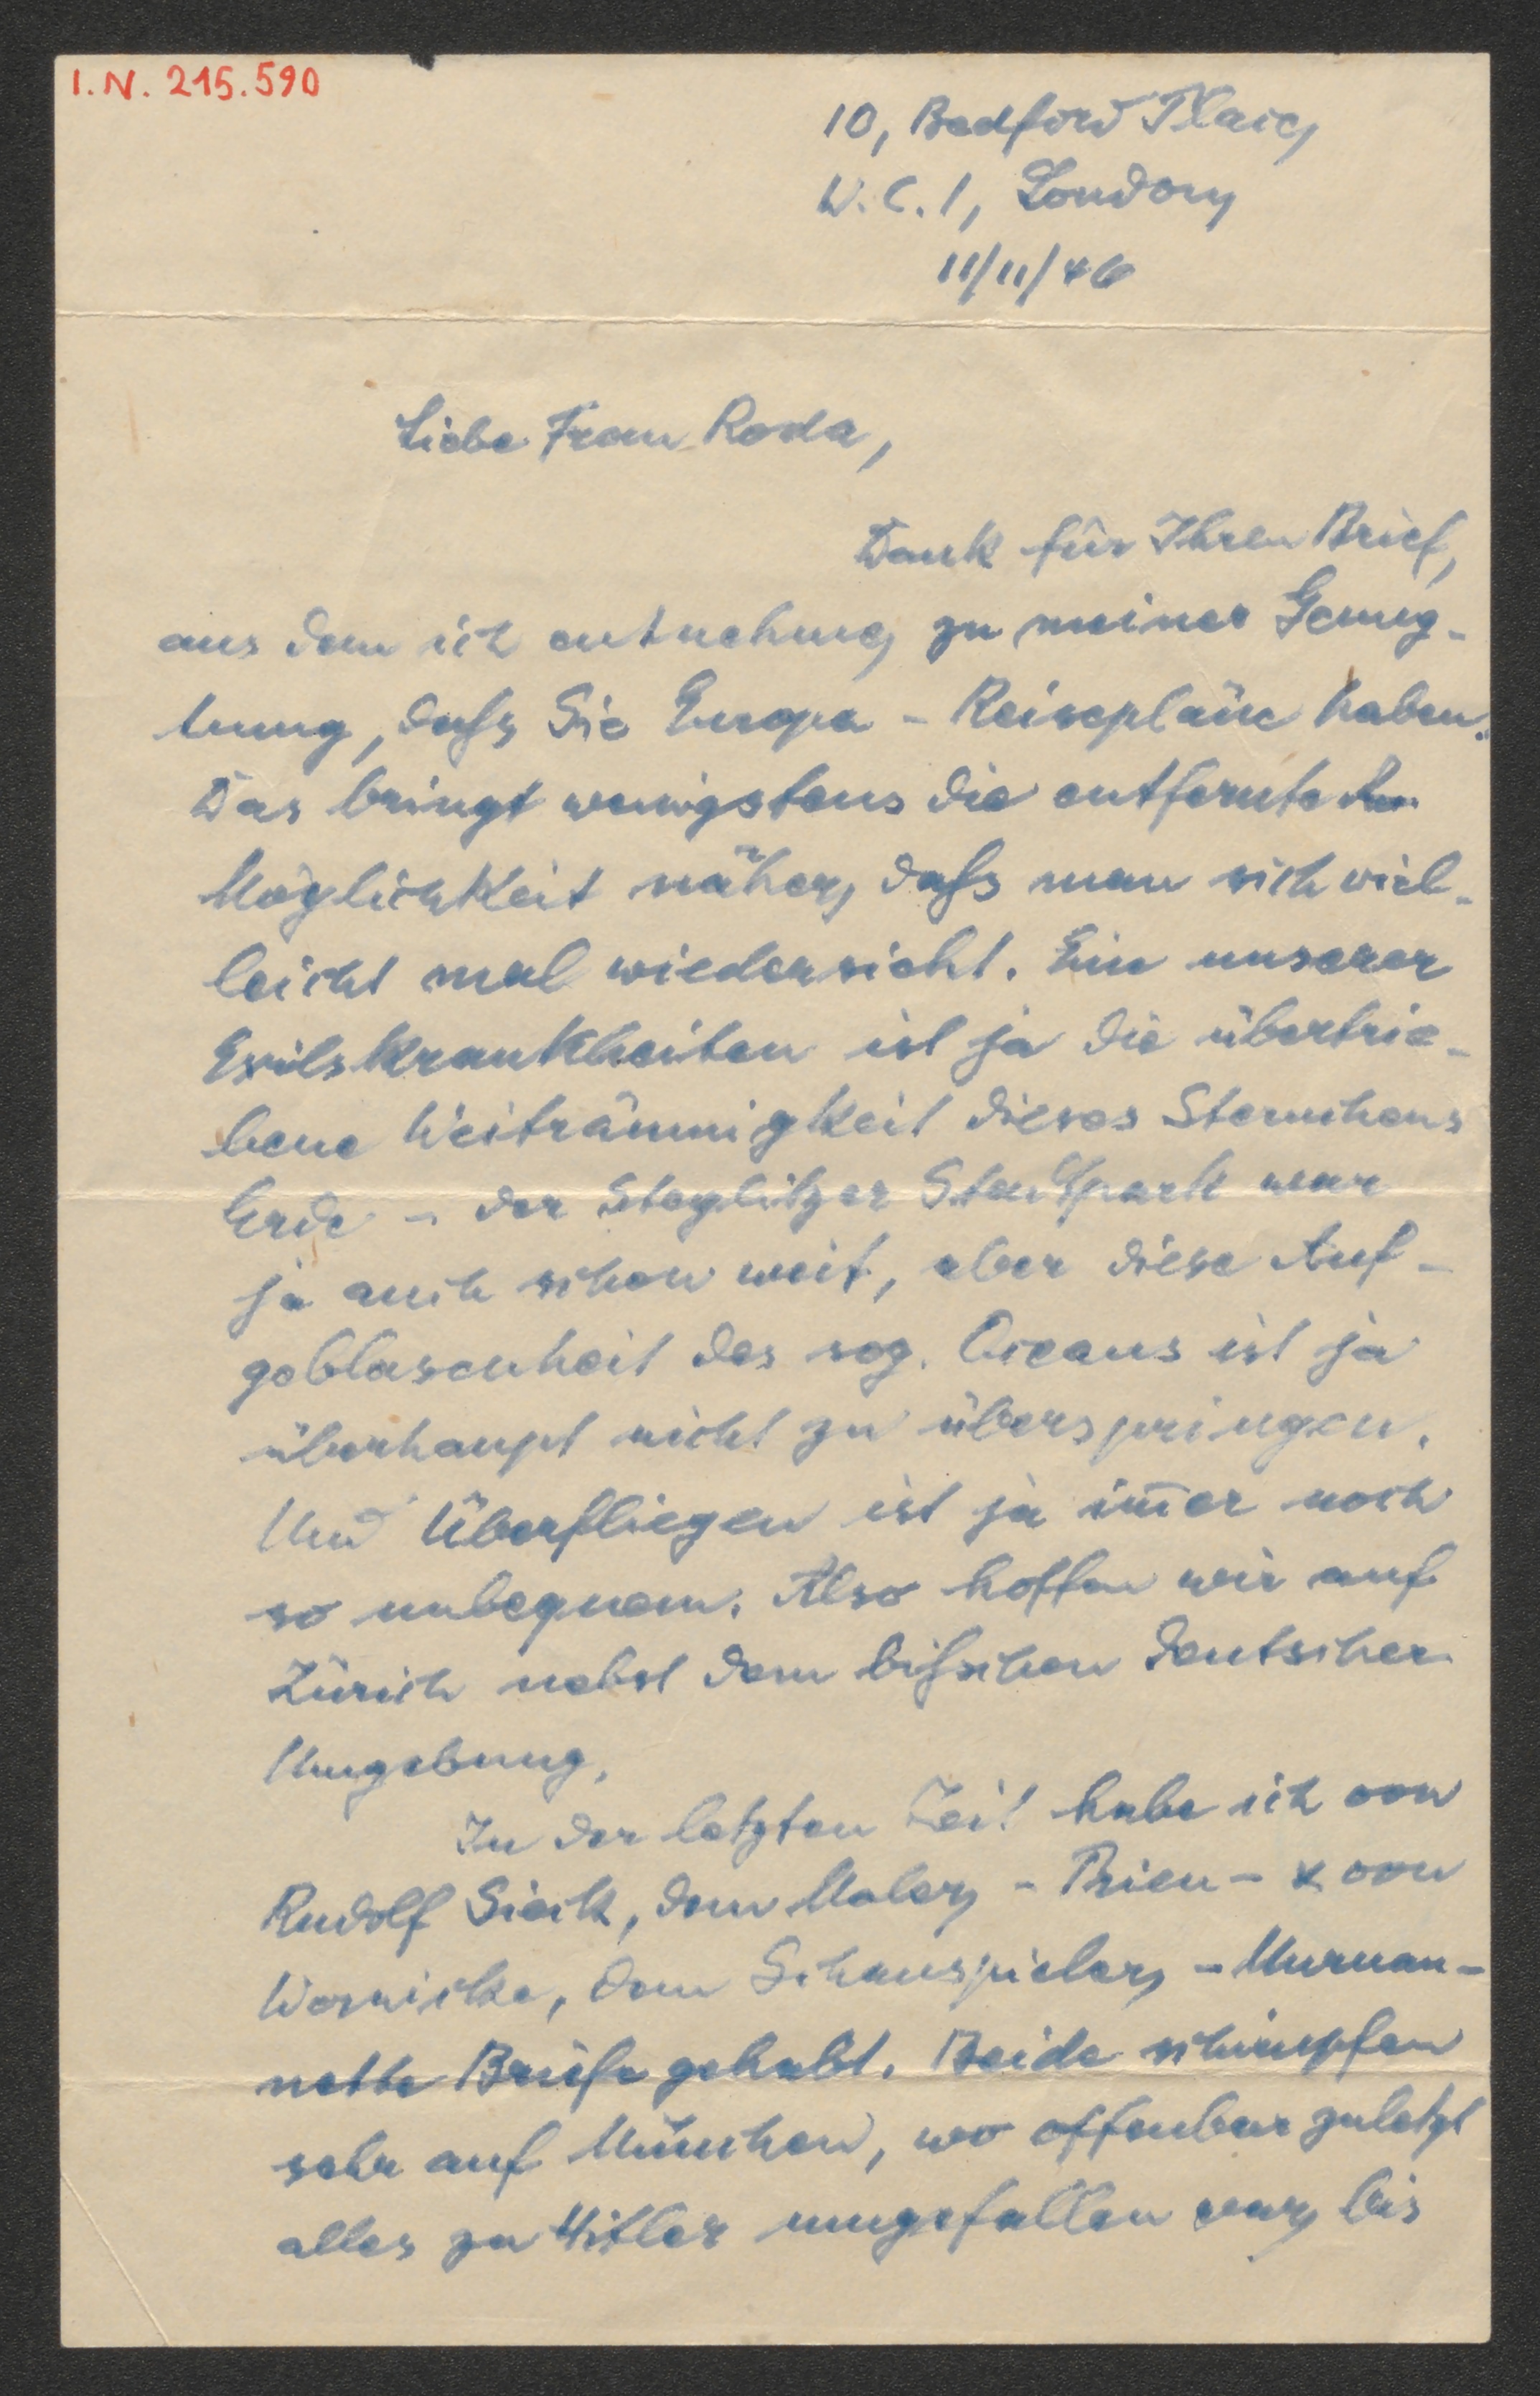 I.N. 215.590
10, Bedford Place,
W.C.1, London,
11/11/46
Liebe Frau Roda,
Dank für Ihren Brief,
aus dem ich entnehme, zu meiner Genug-
tuung, dass Sie Europa - Reisepläne haben.
Das bringt wenigstens die entfernte
Möglichkeit näher, dass man sich viel-
leicht mal wiedersieht. Eine unserer
Exilskrankheiten ist ja die übertrie-
bene Weiträumigkeit dieses Sternchens
Erde - der Steglitzer Stadtpark war
ja auch schon weit, aber diese Auf-
geblasenheit des sog. Oceans ist ja
überhaupt nicht zu überspringen.
Und Überfliegen ist ja im̄er noch
so unbequem. Also hoffen wir auf
Zürich nebst dem bisschen Deutscher
Umgebung.
In der letzten Zeit habe ich von
Rudolf Sieck, dem Maler, - Prien - & von
Wernicke, dem Schauspieler, - Murnau -
nette Briefe gehabt. Beide schimpfen
sehr auf München, wo offenbar zuletzt
alles zu Hitler umgefallen war, bis